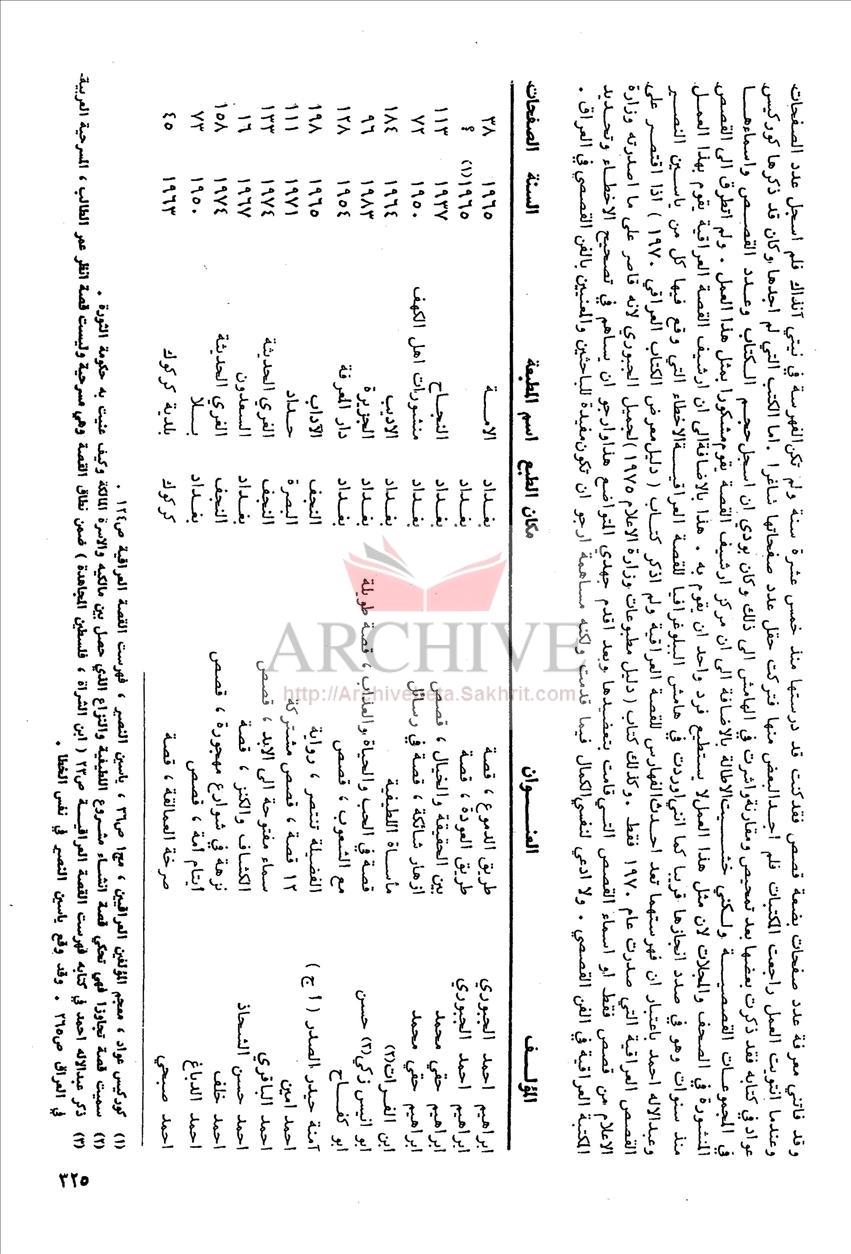 وقد فاتني معرفة عدد صفحات بضعة قصص فقد كنت قد درستها منذ خمس عشرة سنة ولم تكن الفهرسة في نيتي آنذاك فلم اسجل عدد الصفحات.
وعندما انتويت العمل راجعت المكتبات فلم اجد البعض منها فتركت حقل عدد صفحاتها شاغرا . اما الكتب التي لم اجدها وكان قد ذكرها كوركيس
عواد في كتابه فقد ذكرت بعضها بعد تمحيص ومقارنة واشرت في الهامش الى ذلك وكان بودي ان اسجل حجم الكتاب وعدد القصص واسماءها
في المجموعات القصصية ولكني خشيت الاطالة بالاضافة الى ان مركز ارشيف القصة يقوم مشكورا بمثل هذا العمل . ولم اتطرق الى القصص
المنشورة في الصحف والمجلات لان مثل هذا العمل لا يستطيع فرد واحد ان يقوم به . هذا بالاضافة الى ان ارشيف القصة العراقية يقوم بهذا العمل
منذ سنوات وهو في صدد انجازها قريبا كما انني اوردت في هامش الببلوغرافيا للقصة العراقية الاخطاء التي وقع فيها كل من ياسين النصير
وعبدالاله احمد باعتبار ان فهرستهما تعد احدث الفهارس للقصة العراقية ولم اذكر كتاب ( دليل معرض الكتاب العراقي ١٩٧٠ ) اذا اقتصر على
القصص العراقية التي صدرت عام ١٩٧٠ فقط . وكذلك كتاب ( دليل مطبوعات وزارة الاعلام ١٩٧٥ ) لجميل الجبوري لانه قاصر على ما اصدرته وزارة
الاعلام من قصص فقط او اسماء القصص التي قامت بتعضيدها وبعد اقدم جهدي المتواضع هذا وارجو ان يساهم في تصحيح الاخطاء وتحديد
المكتبة العراقية في الفن القصصي . ولا ادعي لنفسي الكمال فيما قدمت ولكنه مساهمة ارجو ان تكون مفيدة للباحثين والمعنيين بالفن القصصي في العراق .
المؤلف العنوان مكان الطبع اسم المطبعة السنة الصفحات
ابراهيم احمد الجبوري طريق الدموع ، قصة بغداد الامة ١٩٦٥ ٣٨
ابراهيم احمد الجبوري طريق العودة ، قصة بغداد ١٩٦٥(١) ؟
ابراهيم حقي محمد بين الحقيقة والخيال ، قصص بغداد النجاح ١٩٣٧ ١١٣
ابراهيم حقي محمد ازهار شائكة ، قصة في رسائل بغداد منشورات اهل الكهف ١٩٥٠ ٧٢
ابن الفرات(٢) مأساة اللطيفية بغداد الاديب ١٩٦٤ ١٨٤
ابو انيس زكي(٣) حسن قصة في الحب والحياة والعذاب ، قصة طويلة بغداد الجزيرة ١٩٨٣ ٩٦
ابو كفاح مع الشعوب ، قصص بغداد دار المعرفة ١٩٥٤ ١٢٨
آمنة حيدر الصدر ( أ ج ) الفضيلة تنتصر ، رواية النجف الآداب ١٩٦٥ ١٩٨
احمد امين ١٢ قصة ، قصص مشتركة البصرة حداد ١٩٧١ ١١١
احمد الباقري سماء مفتوحة الى الابد ، قصص النجف الغري الحديثة ١٩٧٤ ١٣٣
احمد حسن الشحاذ الكشاف والكنز ، قصة بغداد السعدون ١٩٦٧ ١٦
احمد خلف نزهة في شوارع مهجورة ، قصص النجف الغري الحديثة ١٩٧٤ ١٥٨
احمد الدباغ ايتام امة ، قصص بغداد بلا ١٩٥٠ ٧٣
احمد صبحي صرخة العمالقة ، قصة كركوك بلدية كركوك ١٩٦٣ ٤٥
(١) كوركيس عواد ، معجم المؤلفين العراقيين ، مج١ ص٣٦ ، ياسين النصير ، فهرست القصة العراقية ص١٢٤ .
(٢) سميت قصة تجاوزا فهي تحكي قصة انشاء مشروع اللطيفية والنزاع الذي حصل بين مالكيه والاسرة المالكة وكيف عنيت به حكومة الثورة .
(٣) ذكر عبدالاله احمد في كتابه فهرست القصة العراقية ص٢٢ ( ابن الشراة ، فلسطين المجاهدة ) ضمن نطاق القصة وهي مسرحية وليست قصة انظر عمر الطالب ، المسرحية العربية
في العراق ص٢٦٥ . وقد وقع ياسين النصير في نفس الخطا .
٣٢٥
ARCHIVE
http://Archivebeta.Sakhrit.com